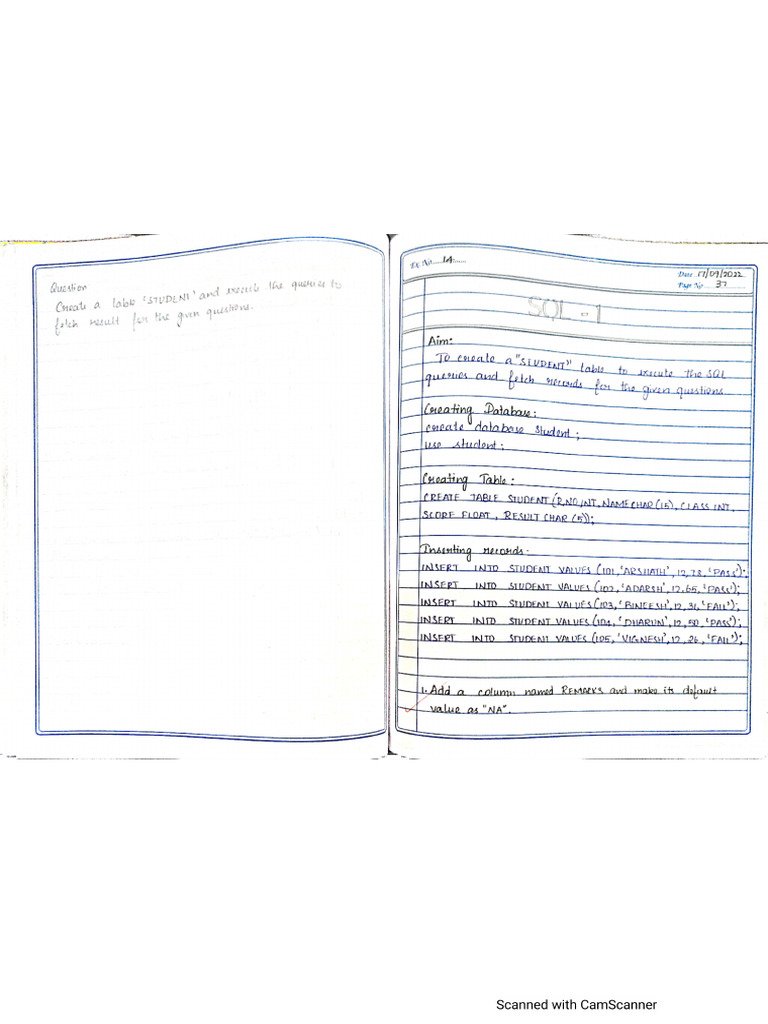 Question
Create a table 'STUDENT' and execute the queries to
fetch result for the given questions.
Ex. No. 14
Date 17/09/2022
Page No 37
SQL - 1
Aim:
To create a "STUDENT" table to execute the SQL
queries and fetch records for the given questions
Creating Database:
create database student;
use student;
Creating Table:
CREATE TABLE STUDENT (R_NO INT, NAME CHAR (15), CLASS INT,
SCORE FLOAT, RESULT CHAR (5));
Inserting records.
INSERT INTO STUDENT VALUES (101, 'ARSHATH', 12, 78, 'PASS');
INSERT INTO STUDENT VALUES (102, 'ADARSH', 12, 65, 'PASS');
INSERT INTO STUDENT VALUES (103, 'BINEESH', 12, 34, 'FAIL');
INSERT INTO STUDENT VALUES (104, 'DHARUN', 12, 50, 'PASS');
INSERT INTO STUDENT VALUES (105, 'VIGNESH', 12, 26, 'FAIL');
1. Add a column named REMARKS and make its default
value as "NA".
Scanned with CamScanner